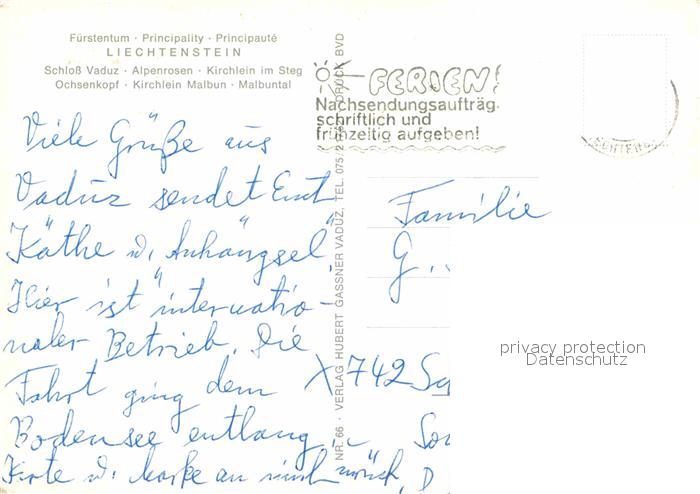 Fürstentum · Principality · Principauté
LIECHTENSTEIN
Schloß Vaduz · Alpenrosen · Kirchlein im Steg
Ochsenkopf · Kirchlein Malbun · Malbuntal
FERIEN!
Nachsendungsaufträg.
schriftlich und
frühzeitig aufgeben!
Viele Grüße aus
Vaduz sendet Euch
Käthe u. "Anhängsel"
Hier ist internatio-
naler Betrieb. Die
Fahrt ging dem
Bodensee entlang
Karte u. Marke an mich zurück.
NR. 66 · VERLAG HUBERT GASSNER VADUZ, TEL. 075/2 DRUCK BVD
Familie
G...
X 742
privacy protection
Datenschutz